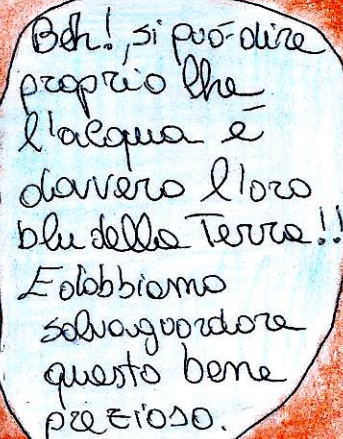 Beh!, si può dire
proprio che
l'acqua è
davvero l'oro
blu della Terra!!
E dobbiamo
salvaguardare
questo bene
prezioso.